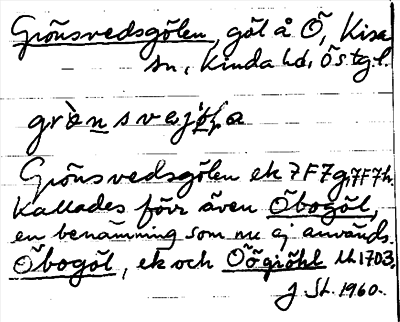 Grönsvedsgölen, göl å Ö, Kisa
sn, Kinda hd, Östgl.
Grönsvedsgölen ek 7F7g, 7F7h.
Kallades förr även Öbogöl,
en benämning som nu ej används.
Öbogöl, ek och Öögiöhl LL 1703.
J St. 1960.